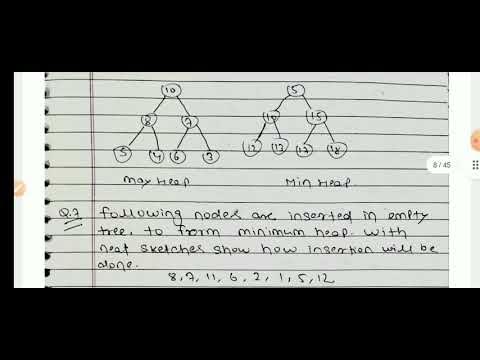 10
5
8 7
10 15
5 4 6 3
12 13 17 18
8/45
Max Heap
Min Heap
Q.7 following nodes are inserted in empty
tree, to from minimum heap. With
neat sketches show how insertion will be
done.
8, 7, 11, 6, 2, 1, 5, 12